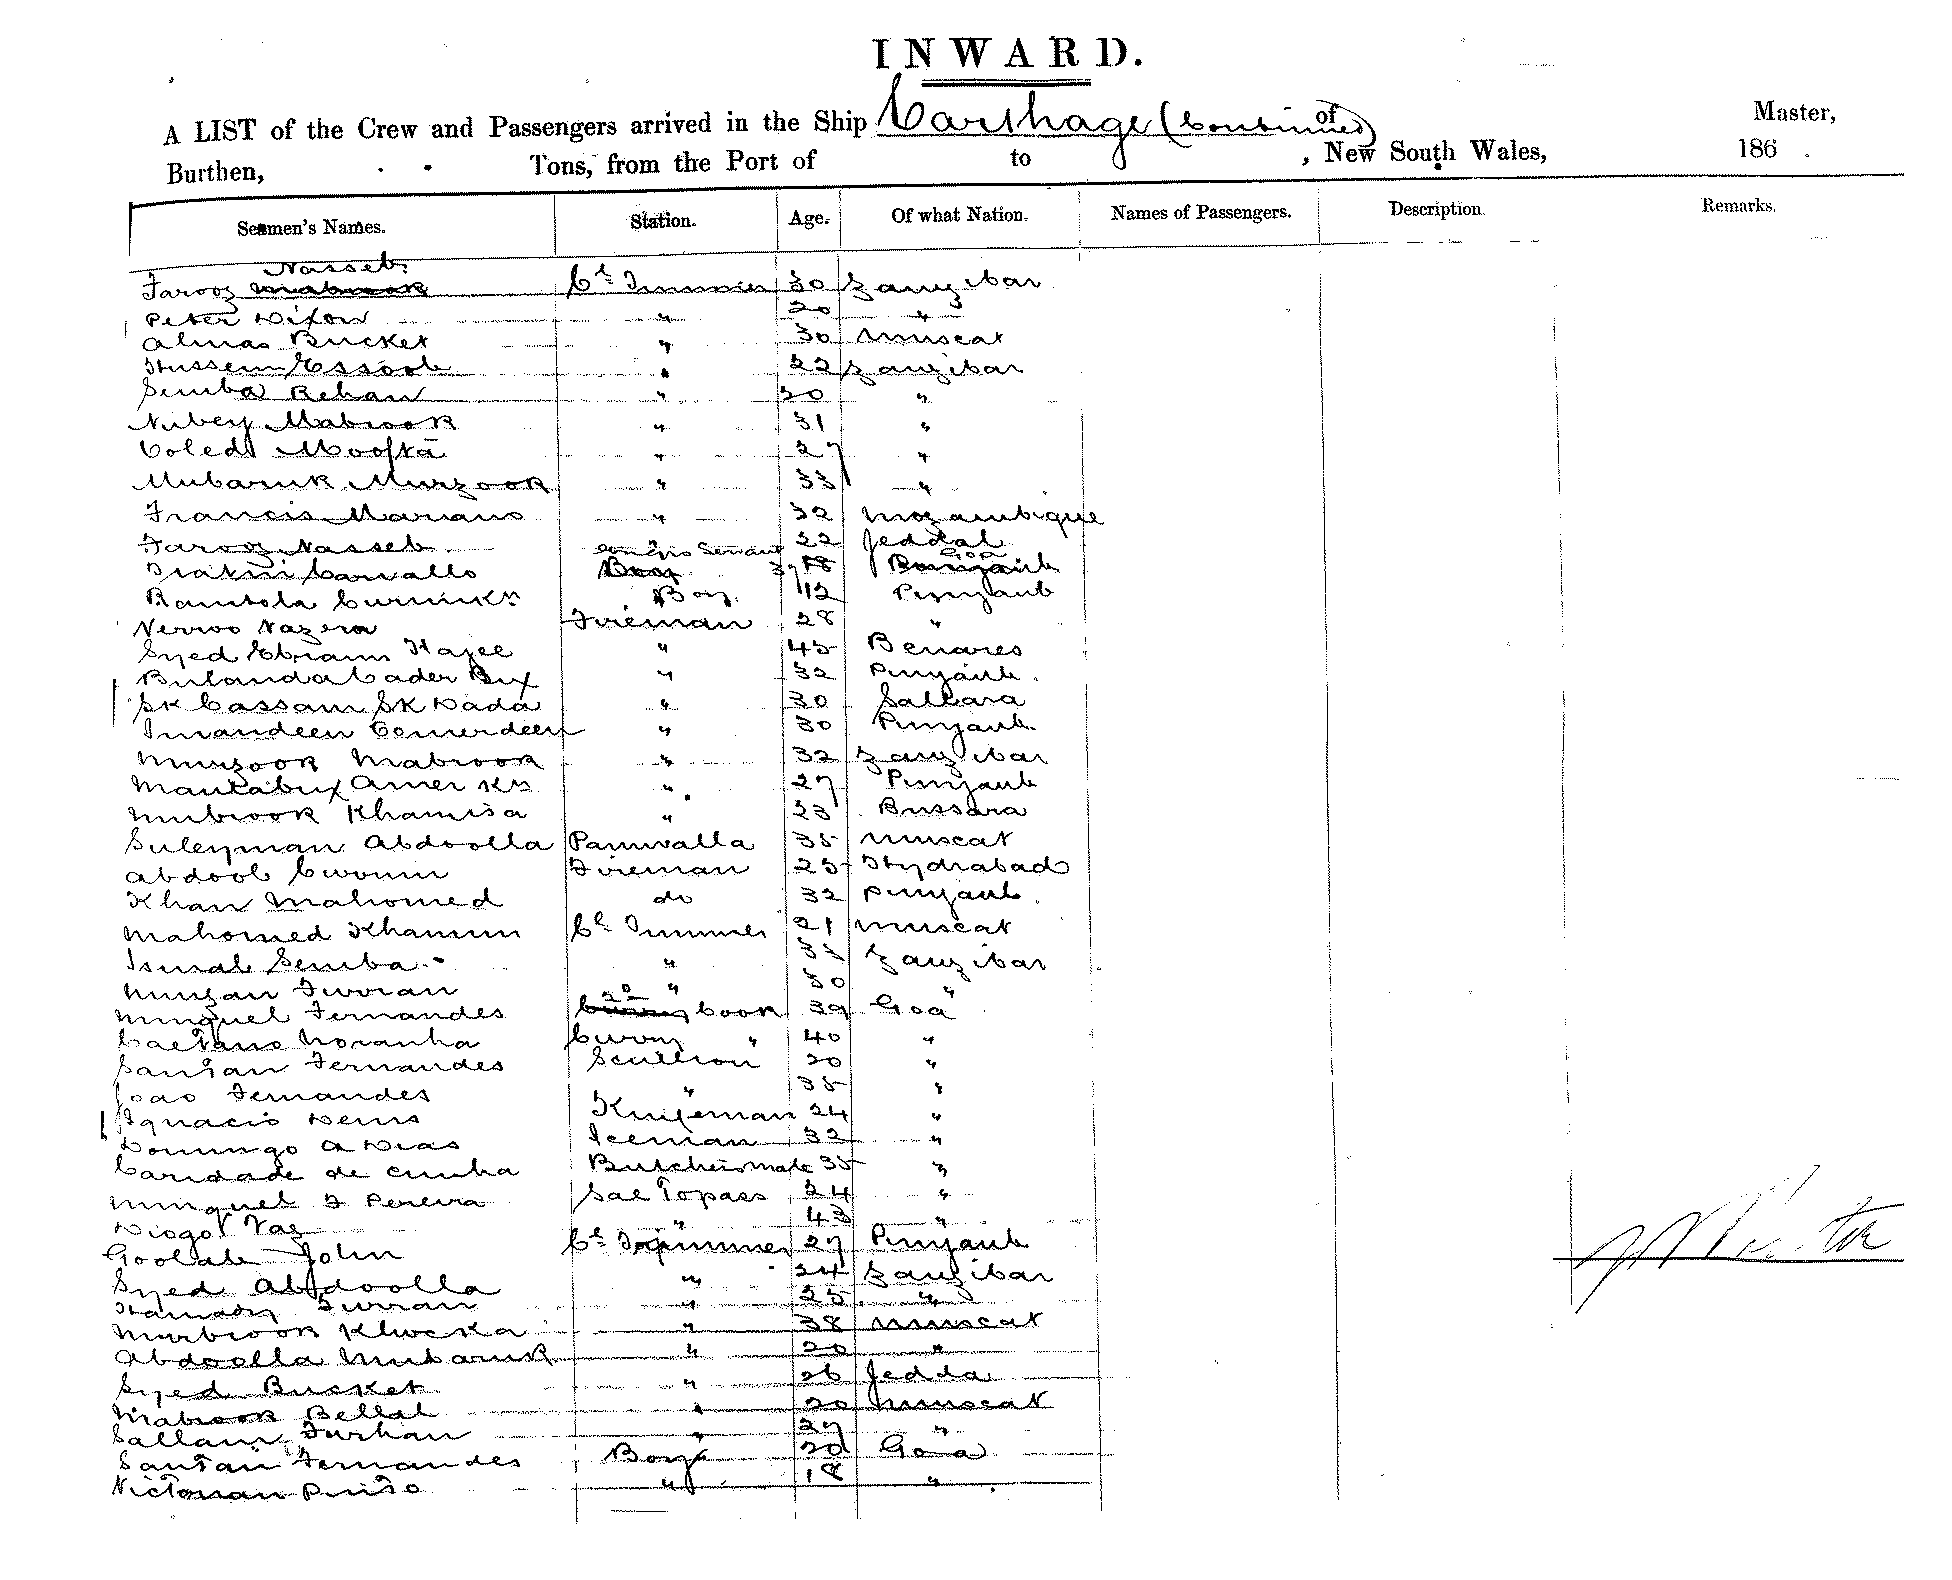 INWARD.
A LIST of the Crew and Passengers arrived in the Ship Carthage (Continued) of Master,
Burthen, Tons, from the Port of to , New South Wales, 186 .
Seamen's Names. Station. Age. Of what Nation. Names of Passengers. Description. Remarks.
Nasseb
Farooz Mabrook Cl Trimmer 30 Zanzibar
Peter Dixon " 20 "
Almas Bucket " 30 Muscat
Hussein Essoob " 22 Zanzibar
Semba Rehan " 30 "
Nubey Mabrook " 31 "
Coled Moofta " 27 "
Mubaruk Murzook " 33 "
Francis Mariano " 32 Mozambique
Farooz Nasseb " 22 Jeddah
Carvallo Boy 37 Goa
Curimkn Boy 12 Punjaub
Nerroo Nazera Fireman 28 "
Syed Ebraim Hajee " 45 Benares
Bulanda Cader Bux " 32 Punjaub
Sk Cassam Sk Dada " 30 Sattara
Imandeen Comerdeen " 30 Punjaub
Murzook Mabrook " 32 Zanzibar
Mautabux Amer Kn " 27 Punjaub
Mubrook Khamisa " 23 Bussara
Suleyman Abdoolla Paniwalla 35 Muscat
Abdool Currim Fireman 25 Hydrabad
Khan Mahomed do 32 Punjaub
Mahomed Khamim Cl Trimmer 21 Muscat
Ismal Semba " 33 Zanzibar
Murjan Furran " 30 "
Minguel Fernandes Cook 39 Goa
Caetano Noranha Curry " 40 "
Santan Fernandes Scullion 20 "
Joao Fernandes " 35 "
Ignacio Denis Knifeman 24 "
Domingo A Dias Iceman 32 "
Caridade de Cunha Butchers mate 35 "
Minguel F Pereira Sal Topass 24 "
Diogo Vaz " 43 "
Goolab John Cl Trimmer 27 Punjaub
Syed Abdoolla " 24 Zanzibar
Furran " 25 "
Murbrook " 38 Muscat
Abdoolla Mubaruk " 20 "
Syed Bucket " 26 Jedda
Mabrook Bellal " 20 Muscat
Sallam Furhan " 27 "
Santan Fernandes Boy 20 Goa
Victorian Pinto " 18 "